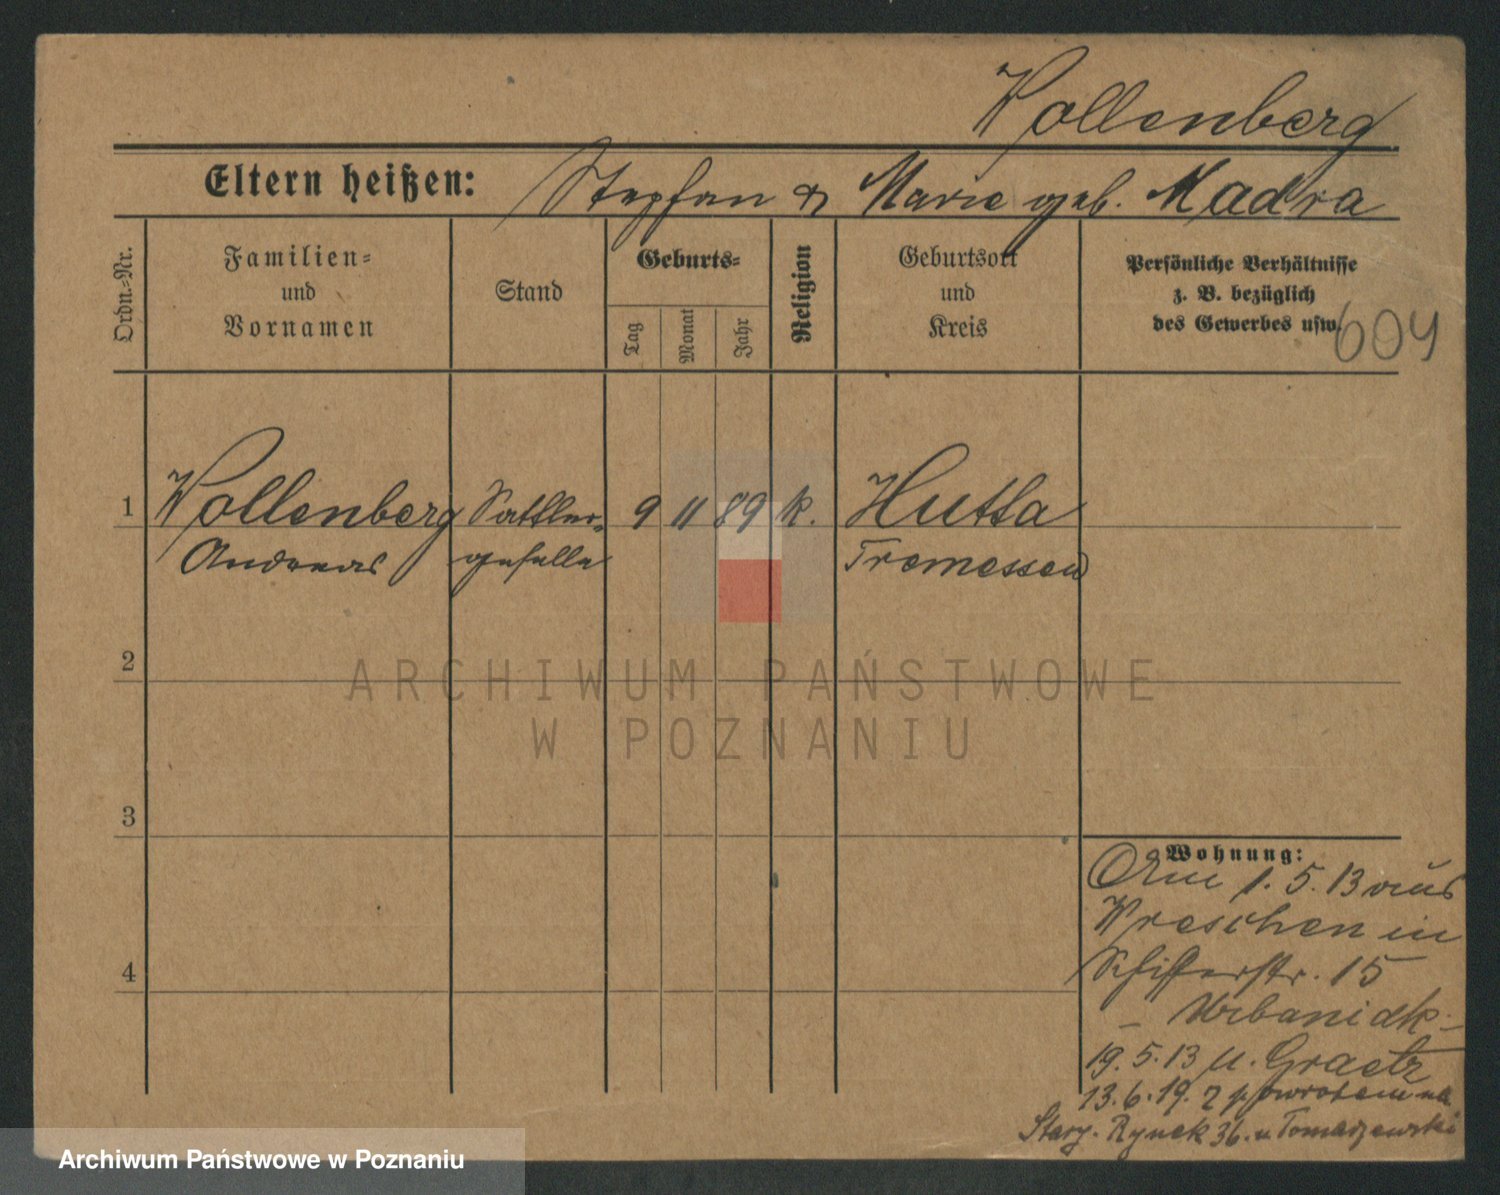 Wollenberg
Eltern heißen: Stephan & Marie geb. Madra
Ordn.-Nr.
Familien-
und
Vornamen
Stand
Geburts-
Tag
Monat
Jahr
Religion
Geburtsort
und
Kreis
Persönliche Verhältnisse
z. B. bezüglich
des Gewerbes usw.
604
1 Wollenberg Sattler- 9 11 89 k. Hutta
Andreas geselle Tremessen
2
3
4
Wohnung:
Am 1. 5. 13 aus
Wreschen in
Schifferstr. 15
- Urbaniak -
19. 5. 13 u. Graetz
13. 6. 19. z powrotem na
Stary. Rynek 36. u Tomaszewski
ARCHIWUM PAŃSTWOWE
W POZNANIU
Archiwum Państwowe w Poznaniu